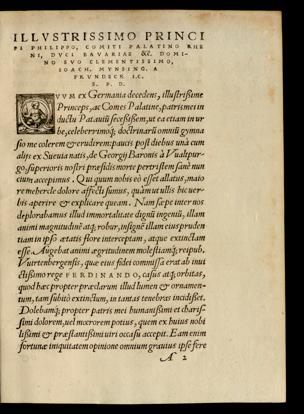 ILLVSTRISSIMO PRINCI
PI PHILIPPO, COMITI PALATINO RHE
NI, DVCI BAVARIAE &c. DOMI-
NO SVO CLEMENTISSIMO,
IOACH. MYNSING. A
FRVNDECK I.C.
S. P. D.
CVVM ex Germania decedens, illustrissime
Princeps, ac Comes Palatine, patris mei in
ductu Patauiũ secessissem, ut ea etiam in ur
be, celeberrimoq; doctrinarũ omniũ gymna
sio me colerem & erudirem: paucis post diebus unà cum
alijs ex Sueuia natis, de Georgij Baronis à Vualtpur-
go, superioris nostri præsidis morte pertristem sanè nun
cium accepimus. Qui quum nobis eò esset allatus, maio
re mehercle dolore affecti sumus, quàm ut ullis hic uer-
bis aperire & explicare queam. Nam sæpe inter nos
deplorabamus illud immortalitate dignũ ingeniũ, illam
animi magnitudinẽ atq; robur, insignẽ illam eius pruden
tiam in ipso ætatis flore interceptam, atque extinctam
esse. Augebat animi ægritudinem molestiamq; reipub.
Vuirtenbergensis, quæ eius fidei commissa erat ab inui
ctissimo rege FERDINANDO, casus atq; orbitas,
quod hæc propter præclarum illud lumen & ornamen-
tum, tam subitò extinctum, in tantas tenebras incidisset.
Dolebamq; propter patris mei humanissimi et charis-
simi dolorem, uel mœrorem potius, quem ex huius nobi
lissimi & præstantissimi uiri occasu accepit. Eam enim
fortunæ iniquitatem opinione omnium grauius ipse fere
A 2